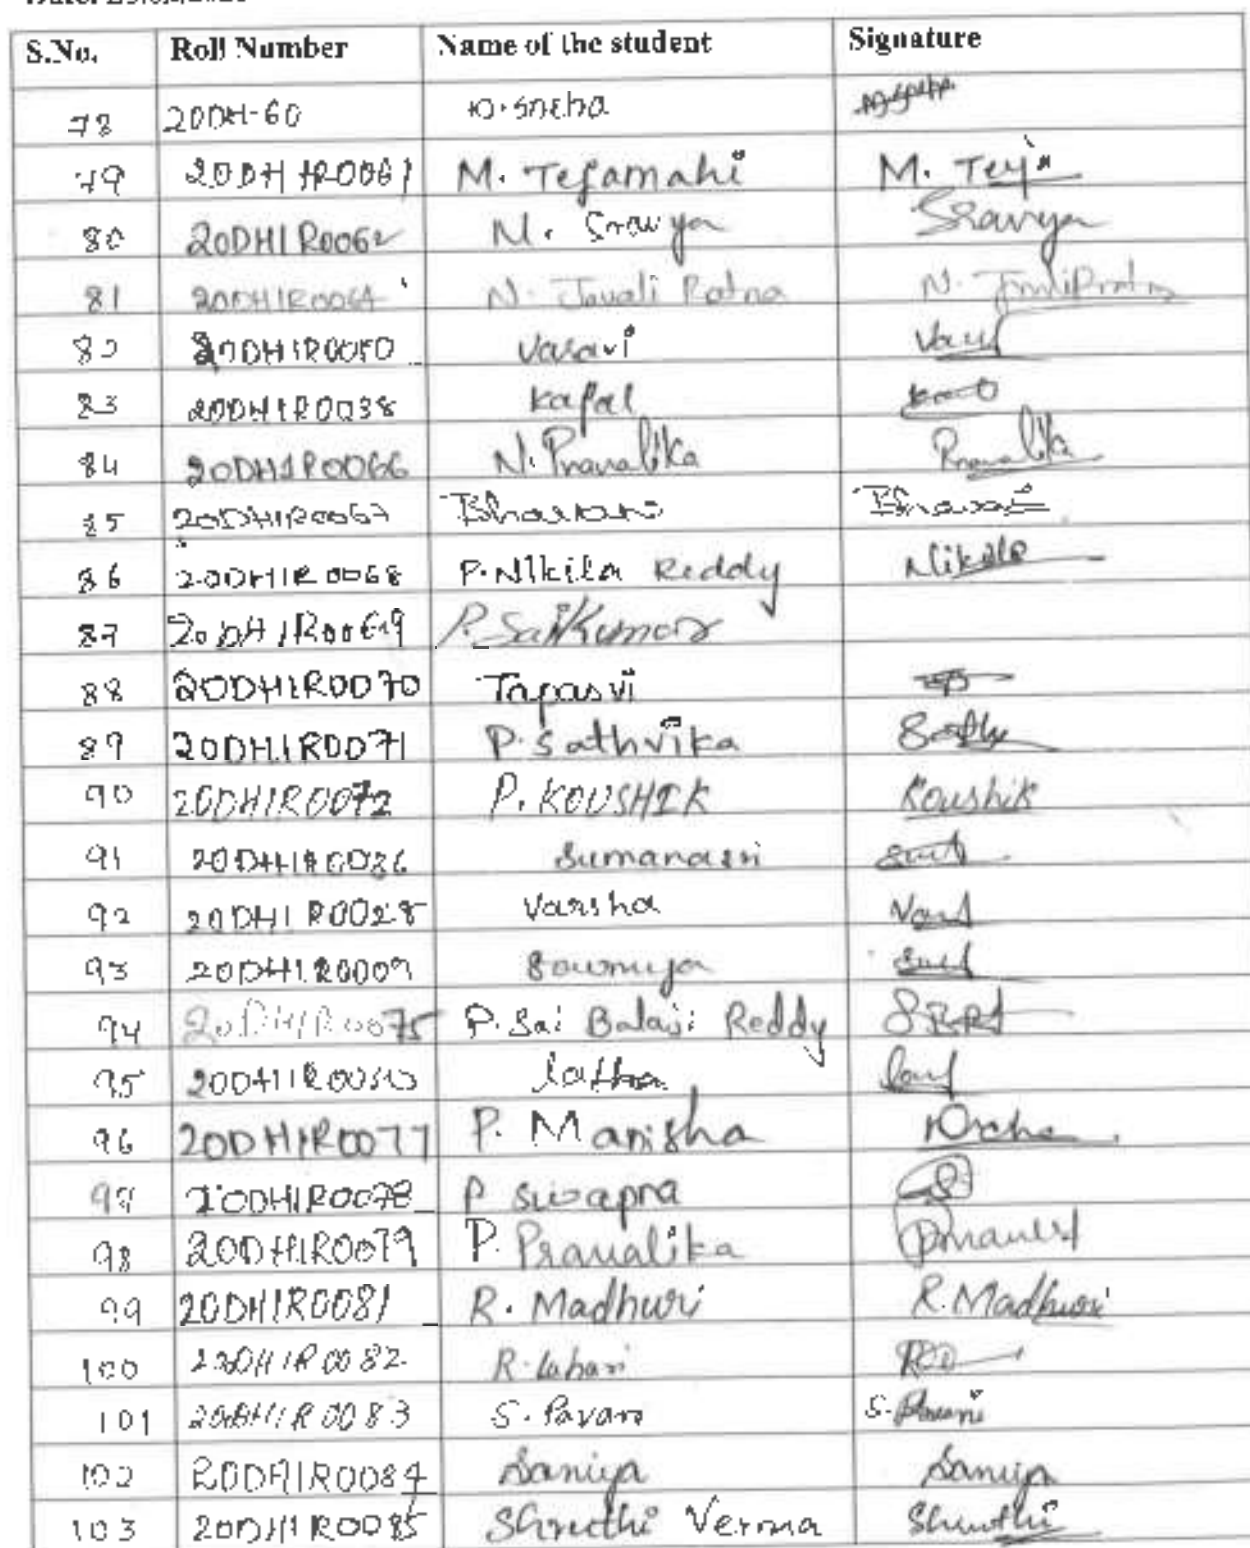 S.No. Roll Number Name of the student Signature
78 20DH-60 D. Sneha
79 20DH1R0061 M. Tejamahi M. Teja
80 20DH1R0062 N. Sravya Sravya
81 20DH1R0064 N. Javali Ratna N.
82 Vasavi
83 20DH1R0038 Kajal
84 20DH1R0066 N. Pravalika Pravalika
85 20DH1R0067 Bhavani Bhavani
86 20DH1R0068 P. Nikila Reddy Nikila
87 20DH1R0069 P. SaiKumar
88 20DH1R0070 Tapasvi
89 20DH1R0071 P. Sathvika
90 20DH1R0072 P. KOUSHIK Koushik
91 20DH1R0026 Sumanasri
92 20DH1R0028 Varsha
93 20DH1R0009 Sowmya
94 20DH1R0075 P. Sai Balaji Reddy SBRd
95 latha
96 20DH1R0077 P. Manisha
97 20DH1R0078 P Swapna
98 20DH1R0079 P. Pravalika
99 20DH1R0081 R. Madhuri R. Madhuri
100 20DH1R0082 R. Lahari
101 20DH1R0083 S. Pavani S. Pavani
102 20DH1R0084 Saniya Saniya
103 20DH1R0085 Shruthi Verma Shruthi